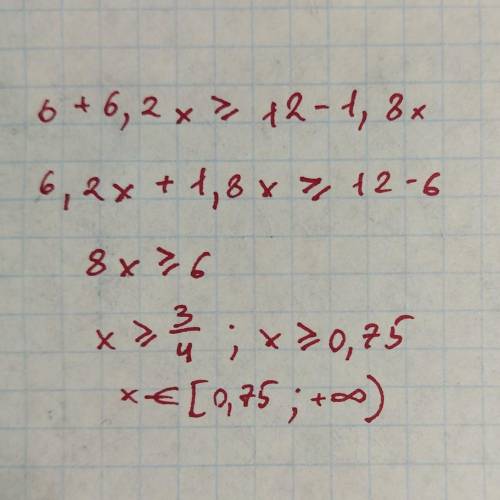 6 + 6,2x ≥ 12 - 1,8x
6,2x + 1,8x ≥ 12 - 6
8x ≥ 6
x ≥ 3/4 ; x ≥ 0,75
x ∈ [0,75 ; +∞)